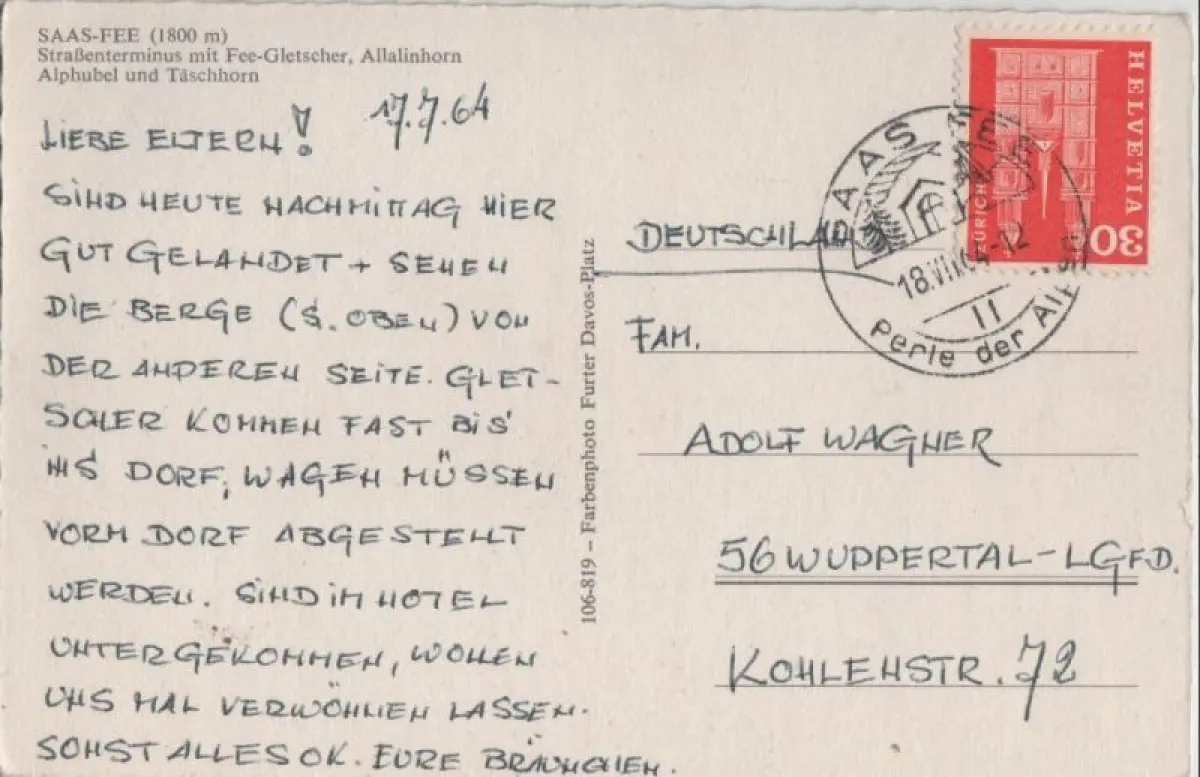 SAAS-FEE (1800 m)
Straßenterminus mit Fee-Gletscher, Allalinhorn
Alphubel und Täschhorn
17.7.64
LIEBE ELTERN!
SIND HEUTE NACHMITTAG HIER
GUT GELANDET + SEHEN
DIE BERGE (S. OBEN) VON
DER ANDEREN SEITE. GLET-
SCHER KOMMEN FAST BIS
INS DORF, WAGEN MÜSSEN
VORM DORF ABGESTELLT
WERDEN. SIND IM HOTEL
UNTERGEKOMMEN, WOLLEN
UNS MAL VERWÖHNEN LASSEN.
SONST ALLES OK. EURE BRÄUNCHEN.
106-819 – Farbenphoto Furter Davos-Platz
HELVETIA
30
ZÜRICH
SAAS-FEE
18.VII.64-12
11
Perle der Alpen
DEUTSCHLAND
FAM.
ADOLF WAGNER
56 WUPPERTAL-LGFD.
KOHLENSTR. 72